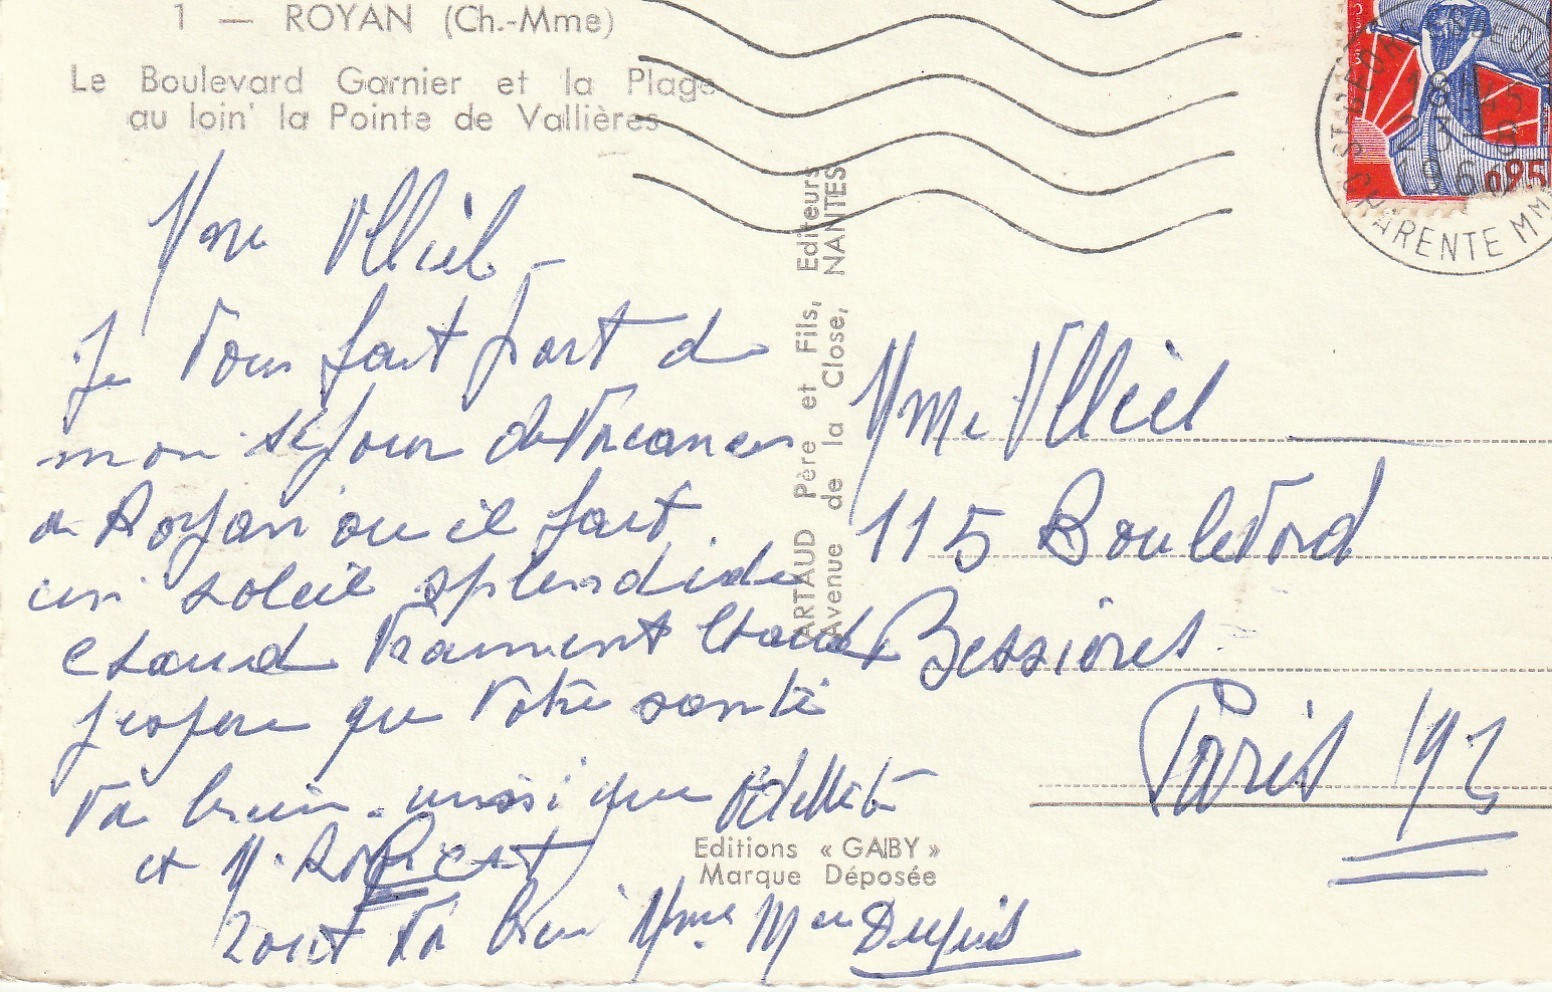 1 — ROYAN (Ch.-Mme)
Le Boulevard Garnier et la Plage
au loin' la Pointe de Vallières
Mme Ulliel
Je vous fait part de
mon séjour de vacances
a Royan ou il fait
un soleil splendide
chaud vraiment chaud
jespere que votre santé
va bien. aussi que Odette
et M. Robert
tout va bien Mme Dupuis
ARTAUD Père et Fils, Editeurs
Avenue de la Close, NANTES
Editions « GABY »
Marque Déposée
ST GEORGES
18H45
23 - 8
196
CHARENTE MME
0,25
Mme Ulliel
115 Boulevard
Bessières
Paris 17